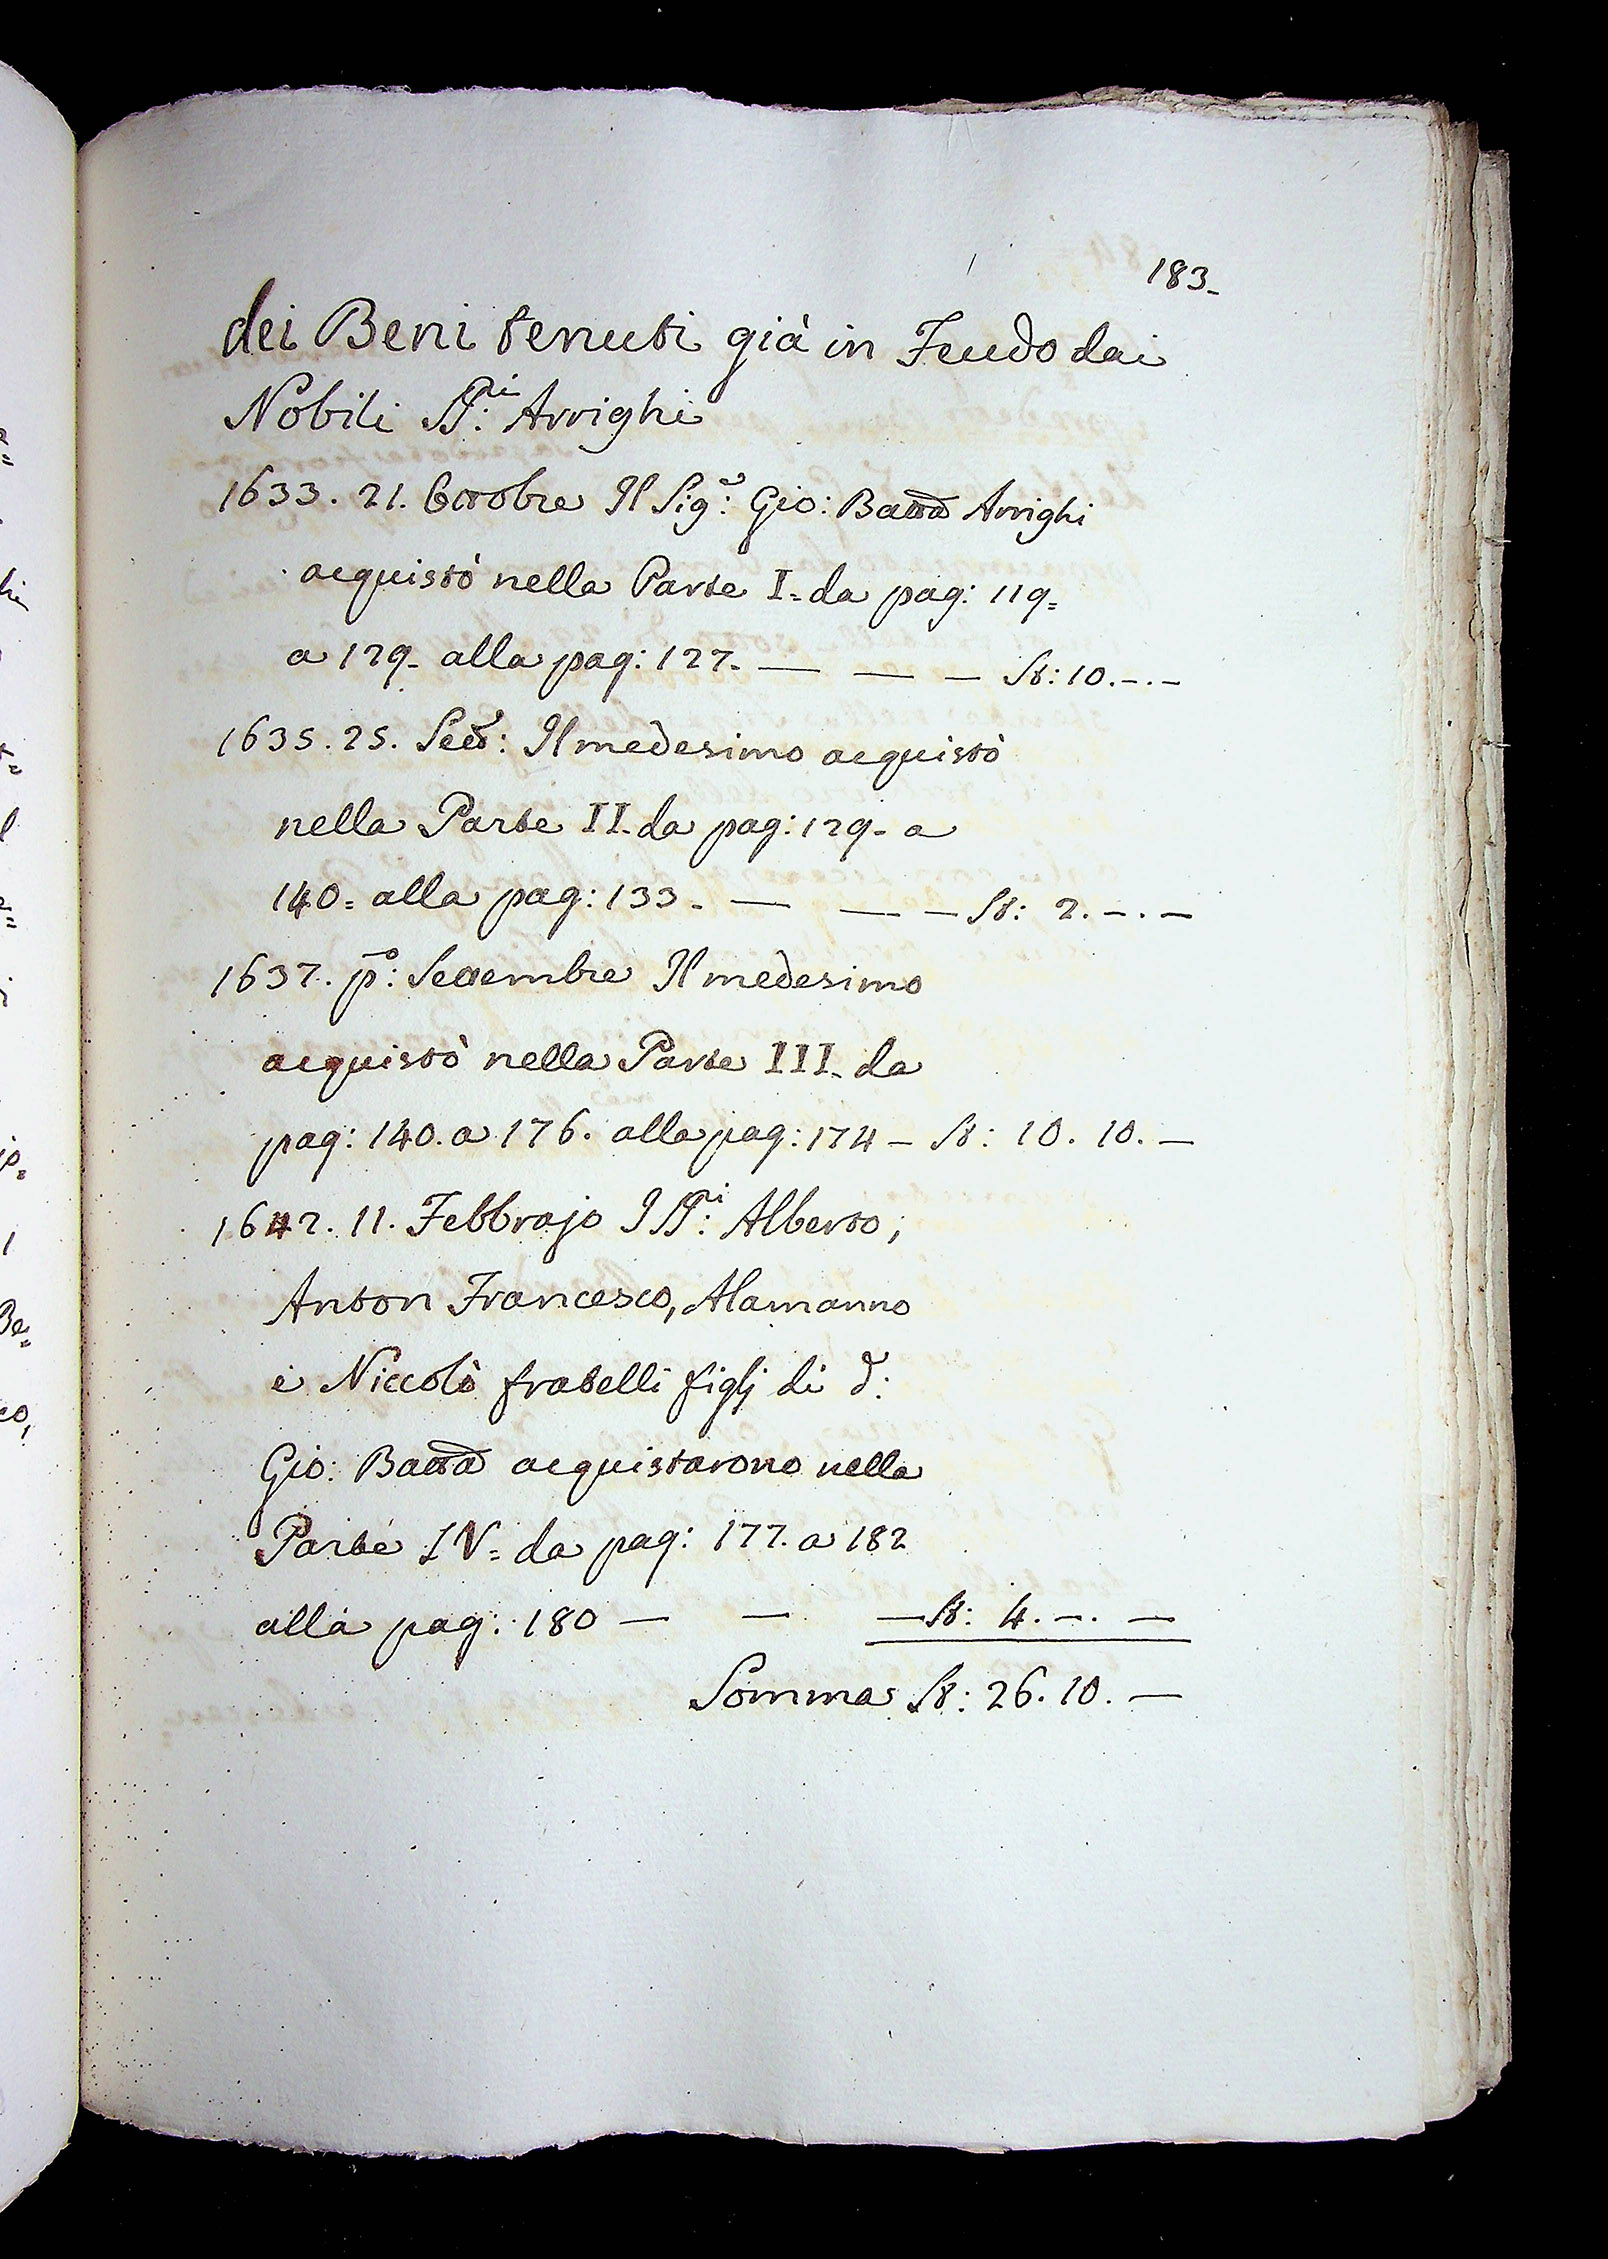 183.
dei Beni tenuti già in Feudo dai
Nobili SS.ri Arrighi
1633. 21. Ottobre Il Sig.r: Gio: Batta Arrighi
acquistò nella Parte I. da pag: 119=
a 129. alla pag: 127. — — — St: 10. -. -
1635. 25. Sett: Il medesimo acquistò
nella Parte II. da pag: 129. a
140= alla pag: 133. — — — St: 2. -. -
1637. p.o: Settembre Il medesimo
acquistò nella Parte III. da
pag: 140. a 176. alla pag: 174 — St: 10. 10. —
1642. 11. Febbrajo I SS.ri: Alberto,
Anton Francesco, Alamanno
e Niccolò fratelli figlj di d:
Gio: Batta acquistarono nella
Parte IV= da pag: 177. a 182
alla pag: 180 — — — St: 4. -. —
Somma St: 26. 10. —